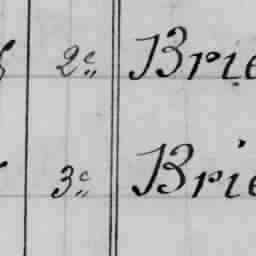 2c,, Brie
3c,, Brie